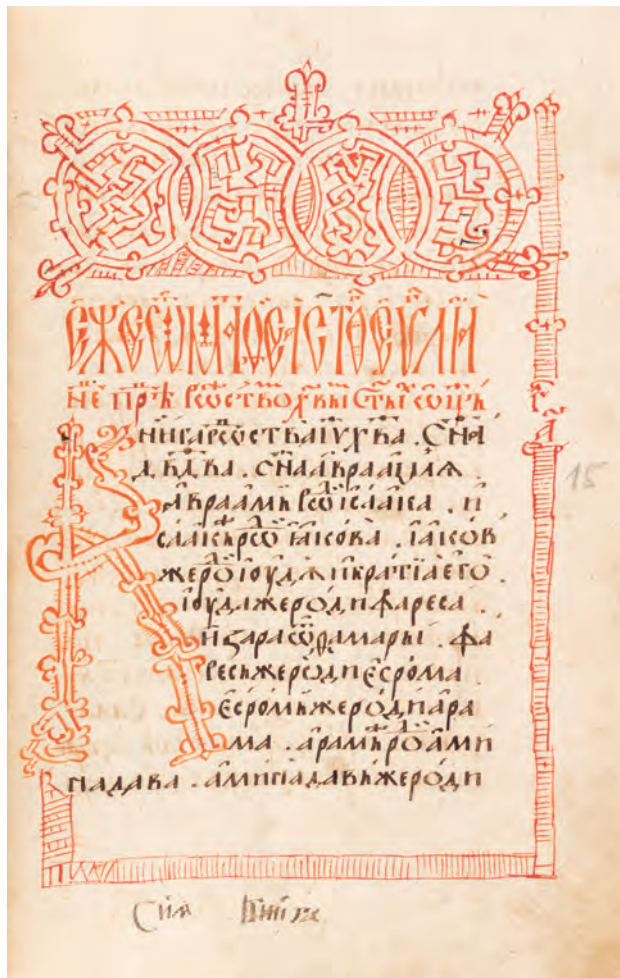 е҆же ѿ маⷴ҇ѳеа ст҃ое еѵⷢ҇лїе
неⷣ пре рⷭ҇ѡствоⷨ хв҃ыⷨ ст҃ыⷯ ѿц҃ь
Книга рѡⷭства і҆ѵ҃ х҃ва . сн҃а
дв҃два . сн҃а а҆враамлѧ
а҆враамь рѡⷣ і҆саака . и҆
саакь же рѡⷣ і҆акова . і҆аков
же рѡⷣ і҆ѹдѫ и҆ братїа е҆го .
і҆ѹда же роди фареса .
и҆ зара ѿ ѳамары . фа
ресь же роди е҆срома .
е҆сромь же роди ара
ма . а҆рамь же рⷪ҇ а҆ми
надава . а҆минадавь же роди
15
Сиѧ книга